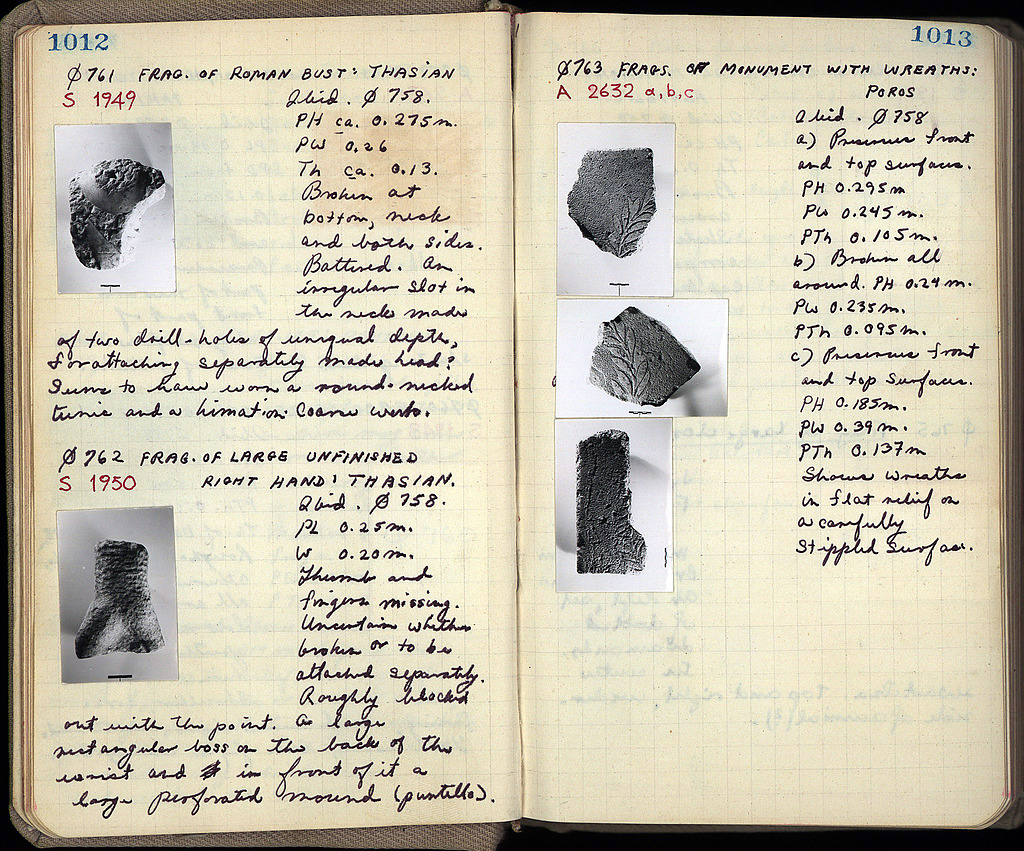 1012
Φ761 FRAG. OF ROMAN BUST: THASIAN
S 1949
Ibid. Φ 758.
PH ca. 0.275m.
PW 0.26
Th ca. 0.13.
Broken at
bottom, neck
and both sides.
Battered. An
irregular slot in
the neck made
of two drill-holes of unequal depth,
for attaching separately made head?
Seems to have worn a round-necked
tunic and a himation. Coarse work.
Φ762 FRAG. OF LARGE UNFINISHED
S 1950 RIGHT HAND: THASIAN.
Ibid. Φ 758.
PL 0.25m.
W 0.20m.
Thumb and
fingers missing.
Uncertain whether
broken or to be
attached separately.
Roughly blocked
out with the point. A large
rectangular boss on the back of the
wrist and in front of it a
large perforated mound (puntello).
1013
Φ763 FRAGS. OF MONUMENT WITH WREATHS:
A 2632 a,b,c POROS
Ibid. Φ758
a) Preserves front
and top surfaces.
PH 0.295m
PW 0.245m.
PTh 0.105m.
b) Broken all
around. PH 0.24m.
PW 0.235m.
PTh 0.095m.
c) Preserves front
and top surfaces.
PH 0.185m.
PW 0.39m.
PTh 0.137m
Shows wreaths
in flat relief on
a carefully
stippled surface.